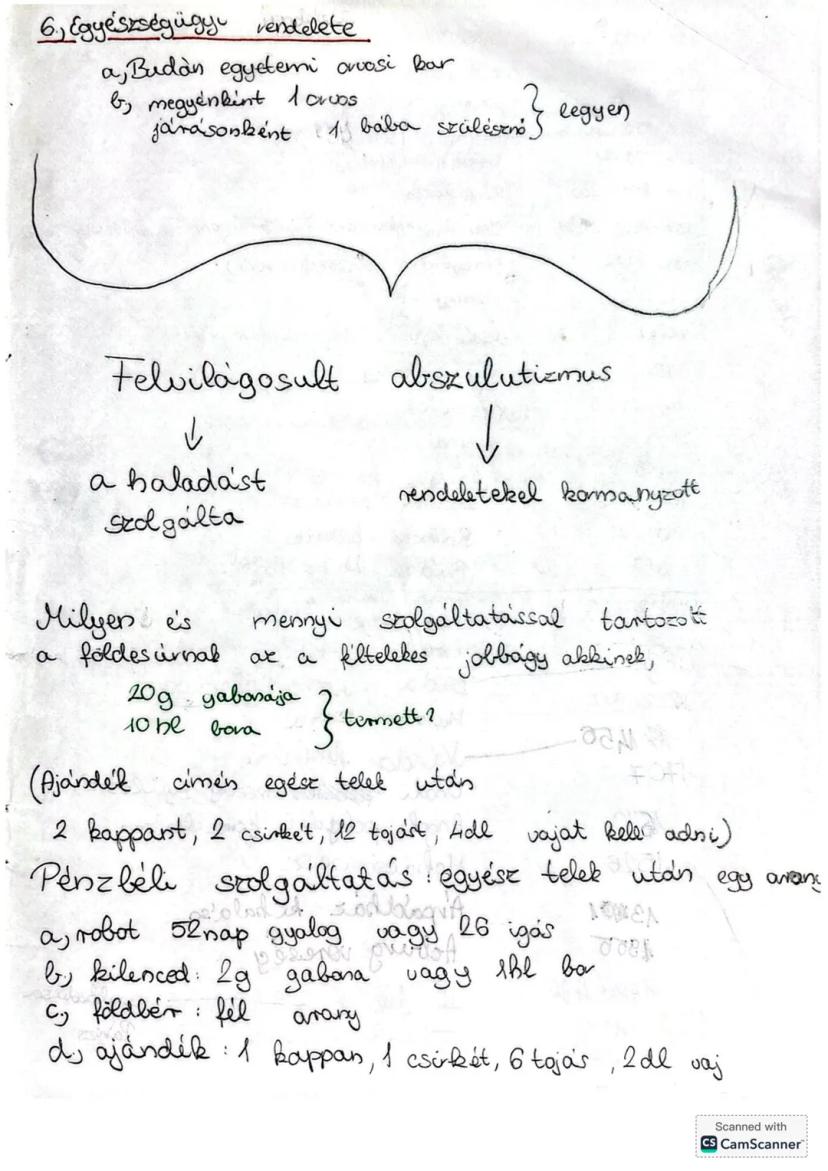 6., Egyészségügyi rendelete
a, Budán egyetemi orvosi kar
b, megyénként 1 orvos
járásonként 1 bába szülésznő } legyen
Felvilágosult abszulutizmus
a haladást rendeletekel kormanyzott
szolgálta
Milyen és mennyi szolgáltatással tartozott
a földesúrnak az a féltelekes jobbágy akkinek,
20g gabonája
10 hl bora } termett?
(Ajándék címén egész telek után
2 kappant, 2 csirkét, 12 tojást, 4dl vajat kell adni)
Pénzbéli szolgáltatás: egyész telek után egy arany
a, robot 52nap gyalog vagy 26 igás
b, kilenced: 2g gabona vagy 1hl bor
c, földbér: fél arany
d, ajándék: 1 kappan, 1 csirkét, 6 tojás, 2dl vaj
Scanned with
CS CamScanner